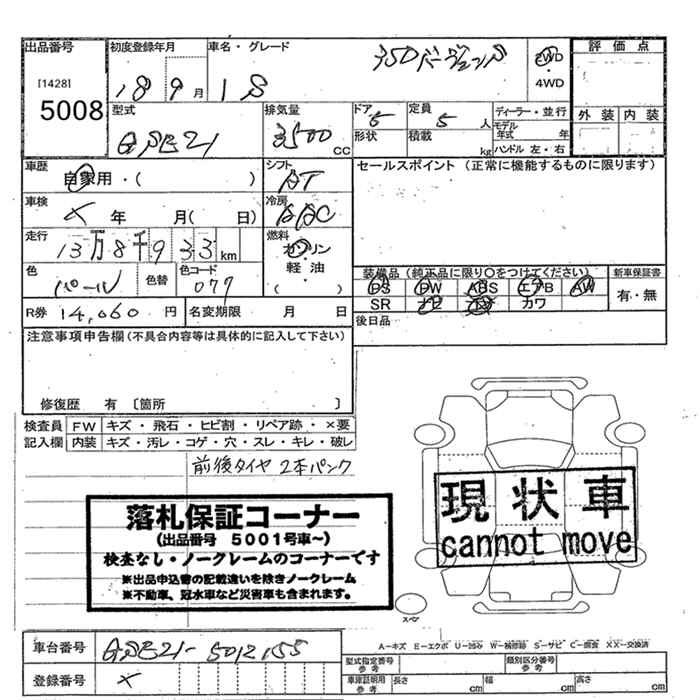 出品番号 初度登録年月 車名・グレード 評価点
[1428] 18 9 月 IS 350バージョンS 2WD
5008 4WD
型式 排気量 ドア 定員 ディーラー・並行 外装 内装
GSE21 3500 CC 5 形状 5 人 積載 kg モデル年式 年 ハンドル 左・右
車歴 シフト セールスポイント (正常に機能するものに限ります)
自家用・( ) AT
車検 冷房
年 月( 日) AAC
走行 燃料
13万8千933 km ガソリン
色 色替 色コード 軽油 装備品 (純正品に限り○をつけてください) 新車保証書
パール 077 ( ) PS PW ABS エアB AW 有・無
SR ナビ カワ
R券 14,060 円 名変期限 月 日 後日品
注意事項申告欄 (不具合内容等は具体的に記入して下さい)
修復歴 有 〔箇所 〕
検査員 FW キズ・飛石・ヒビ割・リペア跡・×要
記入欄 内装 キズ・汚レ・コゲ・穴・スレ・キレ・破レ
前後タイヤ 2本パンク
落札保証コーナー
(出品番号 5001号車~)
検査なし・ノークレームのコーナーです
※出品申込書の記載違いを除きノークレーム
※不動車、冠水車など災害車も含まれます。
現状車
cannot move
スペア
A-キズ E-エクボ U-凹み W-補修跡 S-サビ C-腐食 XX-交換済
車台番号 GSE21-5012155 型式指定番号 参考 類別区分番号 参考
登録番号 × 車庫証明用 参考 長さ cm 幅 cm 高さ cm